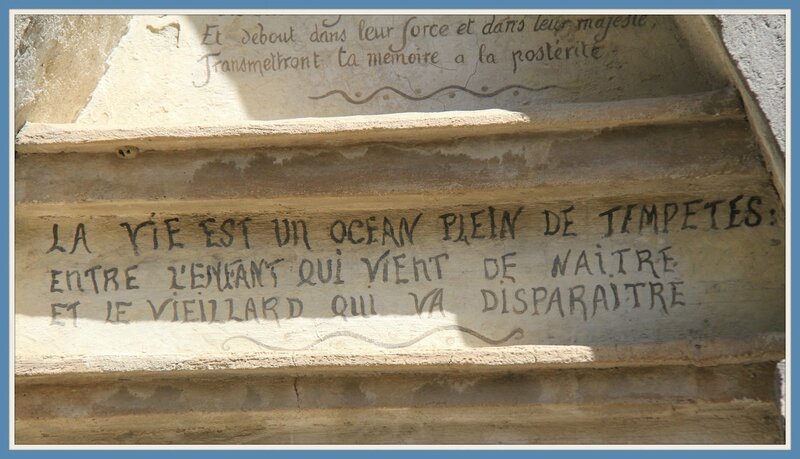 Et debout dans leur force et dans leur majesté,
Transmettront ta mémoire a la postérité
LA VIE EST UN OCEAN PLEIN DE TEMPETES:
ENTRE L'ENFANT QUI VIENT DE NAITRE
ET LE VIEILLARD QUI VA DISPARAITRE